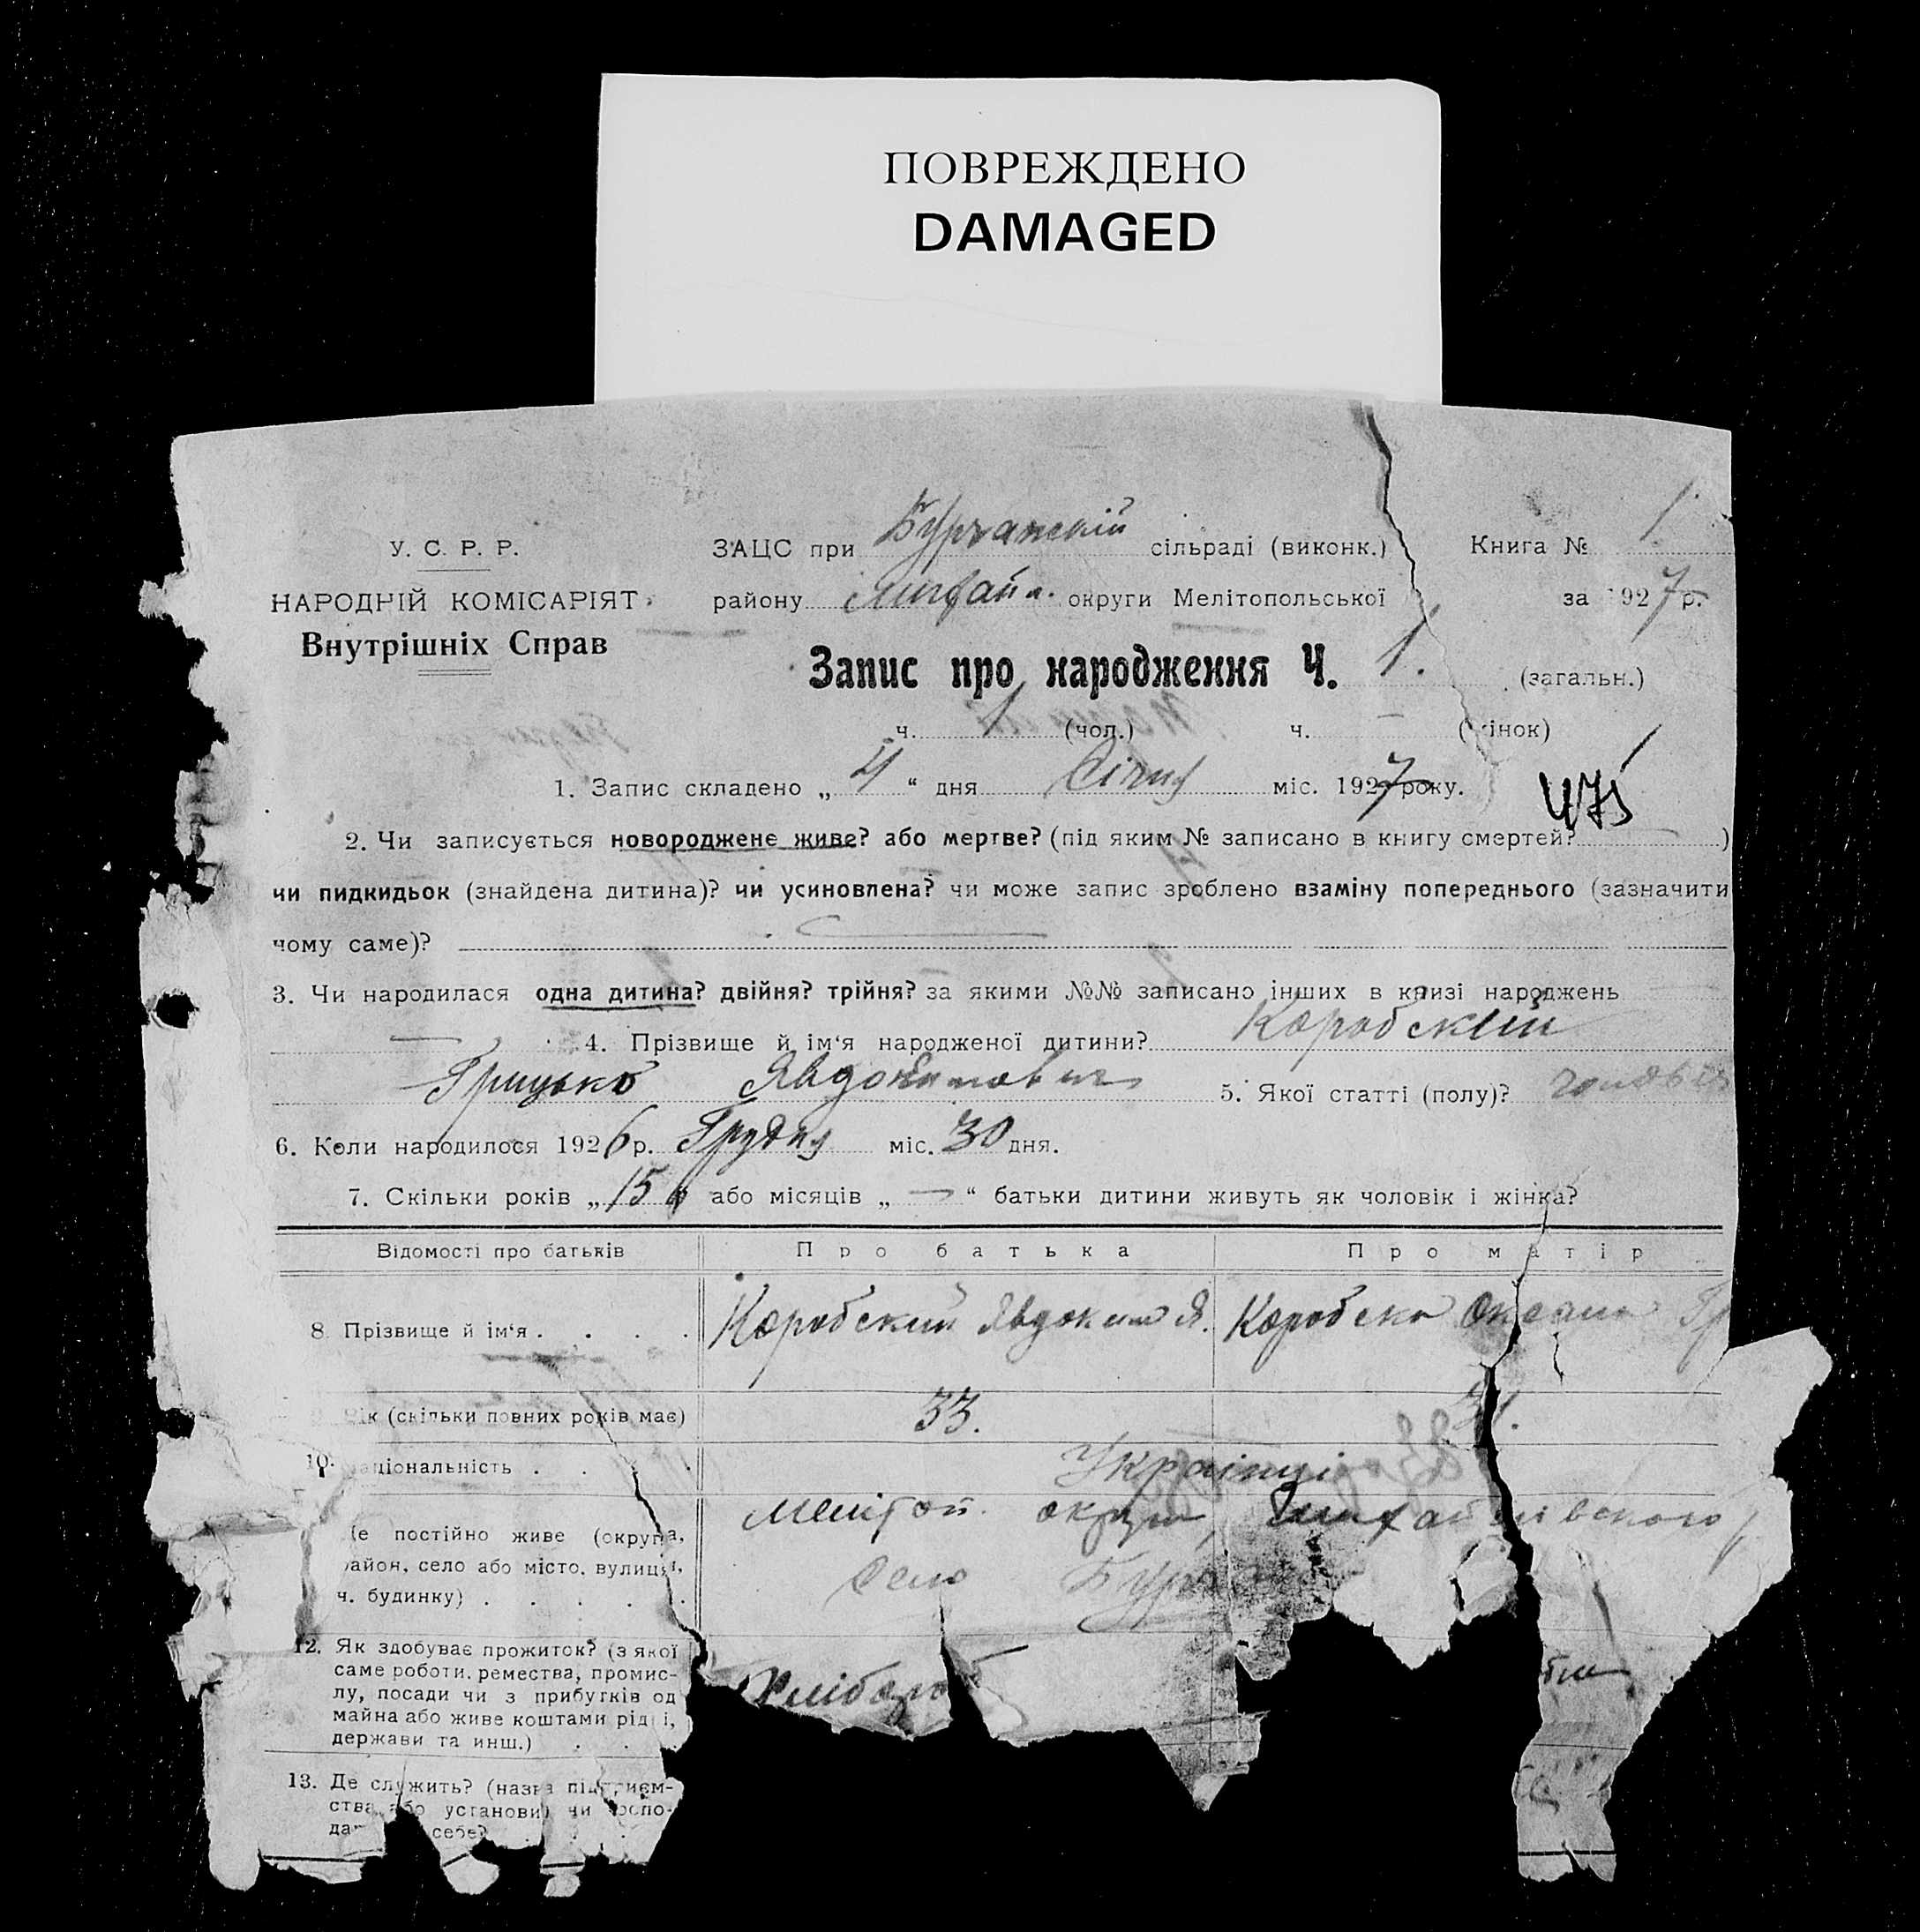 ПОВРЕЖДЕНО
DAMAGED
У. С. Р. Р.
НАРОДНІЙ КОМІСАРІЯТ
Внутрішніх Справ
ЗАЦС при Бурчанській сільраді (виконк.)
району Михайл. округи Мелітопольської
Книга № 1
за 1927 р.
Запис про народження Ч. 1. (загальн.)
ч. 1 (чол.) ч. — (жінок)
1. Запис складено „ 4 “ дня Січня міс. 1927 року.
475
2. Чи записується новороджене живе? або мертве? (під яким № записано в книгу смертей? )
чи пидкидьок (знайдена дитина)? чи усиновлена? чи може запис зроблено взаміну попереднього (зазначити
чому саме)?
3. Чи народилася одна дитина? двійня? трійня? за якими №№ записано інших в книзі народжень
— 4. Прізвище й ім‘я народженої дитини? Коробский
Грицько Явдокимович 5. Якої статті (полу)?
6. Коли народилося 1926 р. Грудня міс. 30 дня.
7. Скільки років „ 15 “ або місяців „ — “ батьки дитини живуть як чоловік і жінка?
Відомості про батьків Про батька Про матір
8. Прізвище й ім‘я . . . . Коробский Явдоким Я. Коробска Оксана Гр
вік (скільки повних років має) 33. 31.
10. національність . . . Українці
Де постійно живе (округа, Мелітоп. округи Михайлівского р
район, село або місто, вулиця,
ч. будинку) . . . . . село Бурч
12. Як здобуває прожиток? (з якої
саме роботи, ремества, промис-
лу, посади чи з прибутків од
майна або живе коштами рідні,
держави та инш.) . . . Хлібороб
13. Де служить? (назва підприєм-
ства або установи) чи госпо-
дар себе?